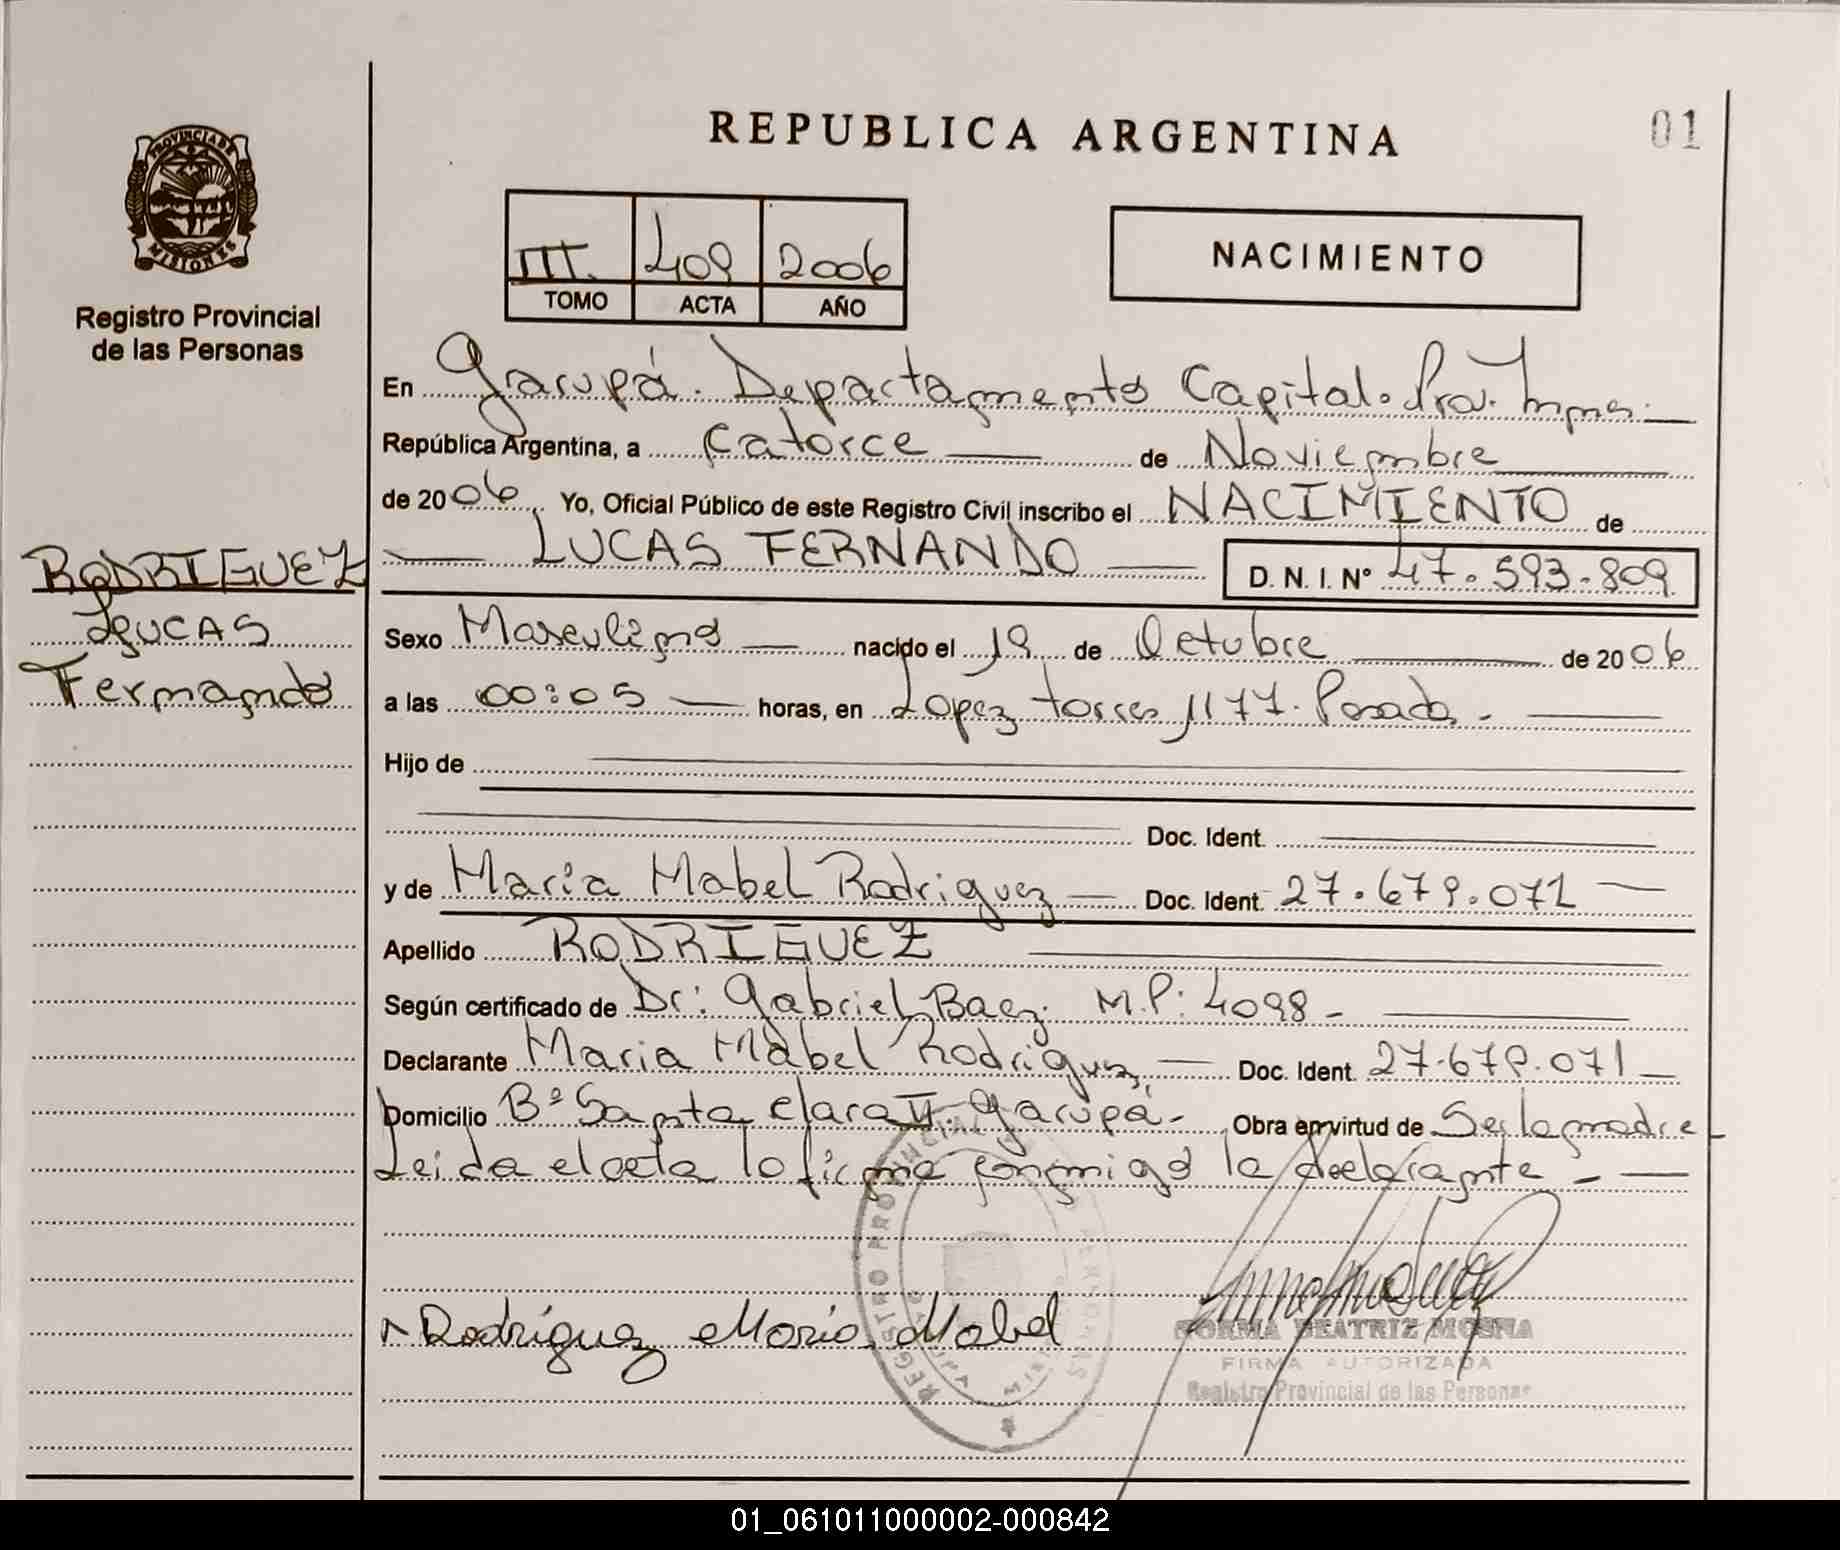 REPUBLICA ARGENTINA
01
PROVINCIA DE
MISIONES
Registro Provincial
de las Personas
III. 409 2006
TOMO ACTA AÑO
NACIMIENTO
En Garupá. Departamento Capital. Prov. Mnes.
República Argentina, a Catorce de Noviembre
de 2006 Yo, Oficial Público de este Registro Civil inscribo el NACIMIENTO de
LUCAS FERNANDO D. N. I. Nº 47.593.809
RODRIGUEZ
LUCAS
Fernando
Sexo Masculino nacido el 19 de Octubre de 2006
a las 00:05 horas, en Lopez torres 1177. Posadas -
Hijo de
Doc. Ident.
y de Maria Mabel Rodriguez Doc. Ident. 27.679.071
Apellido RODRIGUEZ
Según certificado de Dr: Gabriel Baez. M.P: 4098 -
Declarante Maria Mabel Rodriguez, Doc. Ident. 27.679.071
Domicilio Bº Santa clara II. Garupá - Obra en virtud de Ser la madre
Leida el acta lo firma conmigo la declarante -
Rodríguez María Mabel
REGISTRO PROVINCIAL DE LAS PERSONAS
GARUPA
NORMA BEATRIZ MOSNA
FIRMA AUTORIZADA
Registro Provincial de las Personas
01_061011000002-000842